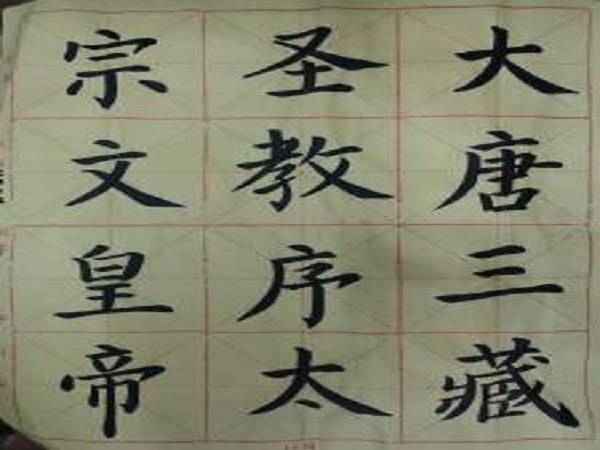 大唐三藏
圣教序太
宗文皇帝